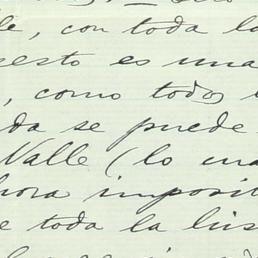 le, con toda la
esto es una
, como todos
da se puede
Valle (lo ma
hora imposit
e toda la his